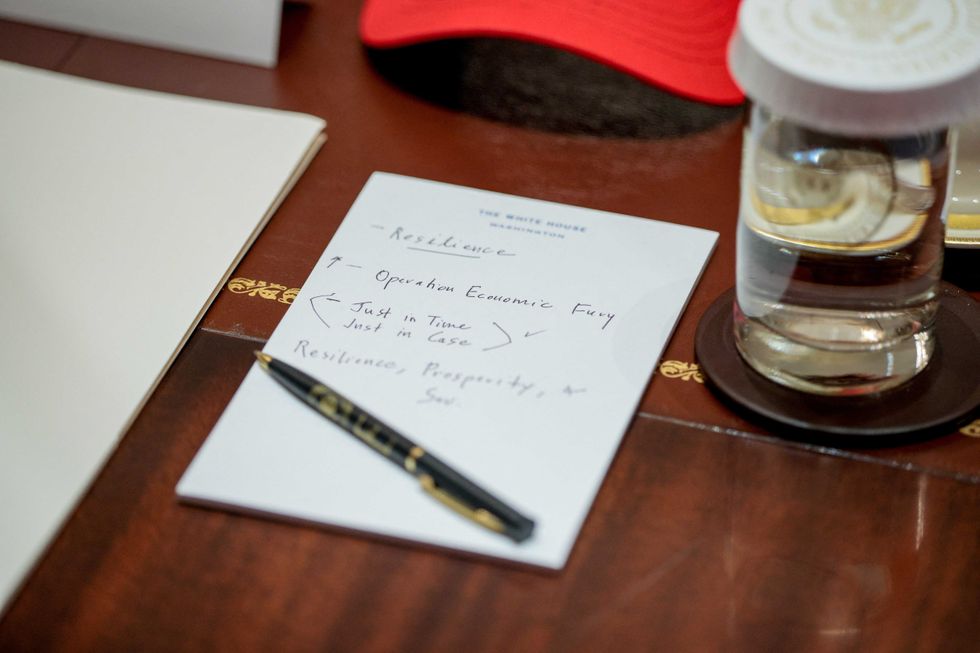 THE WHITE HOUSE
WASHINGTON
- Resilience
↑ - Operation Economic Fury
- Just in Time
Just in Case
Resilience, Prosperity, &
Sov.